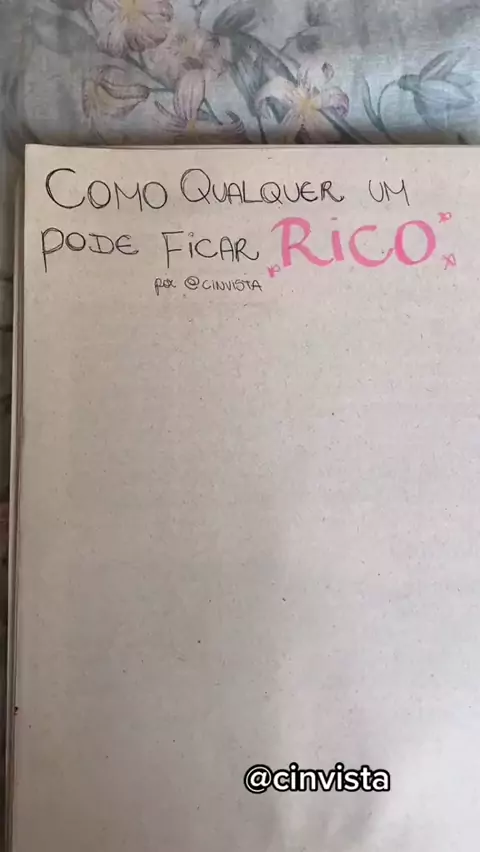 COMO QUALQUER UM
PODE FICAR RICO
por @CINVISTA
@cinvista